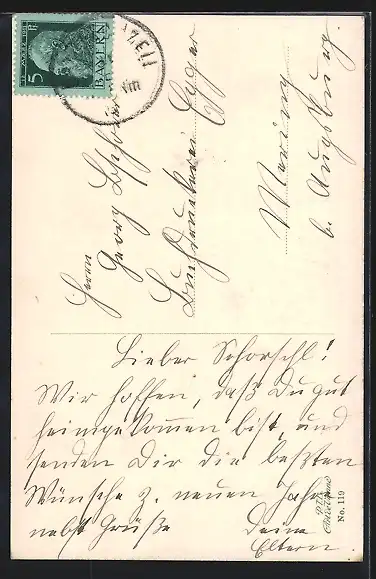 5 Pf
BAYERN
ZELL
VIII
Herrn
Georg
Buchdruckerei Eger
Mering
b. Augsburg.
Lieber Schorschl!
Wir hoffen, daß Du gut
heimgekommen bist, und
senden Dir die beßten
Wünsche z. neuen Jahr
nebst Grüße Deine
Eltern.
No. 119